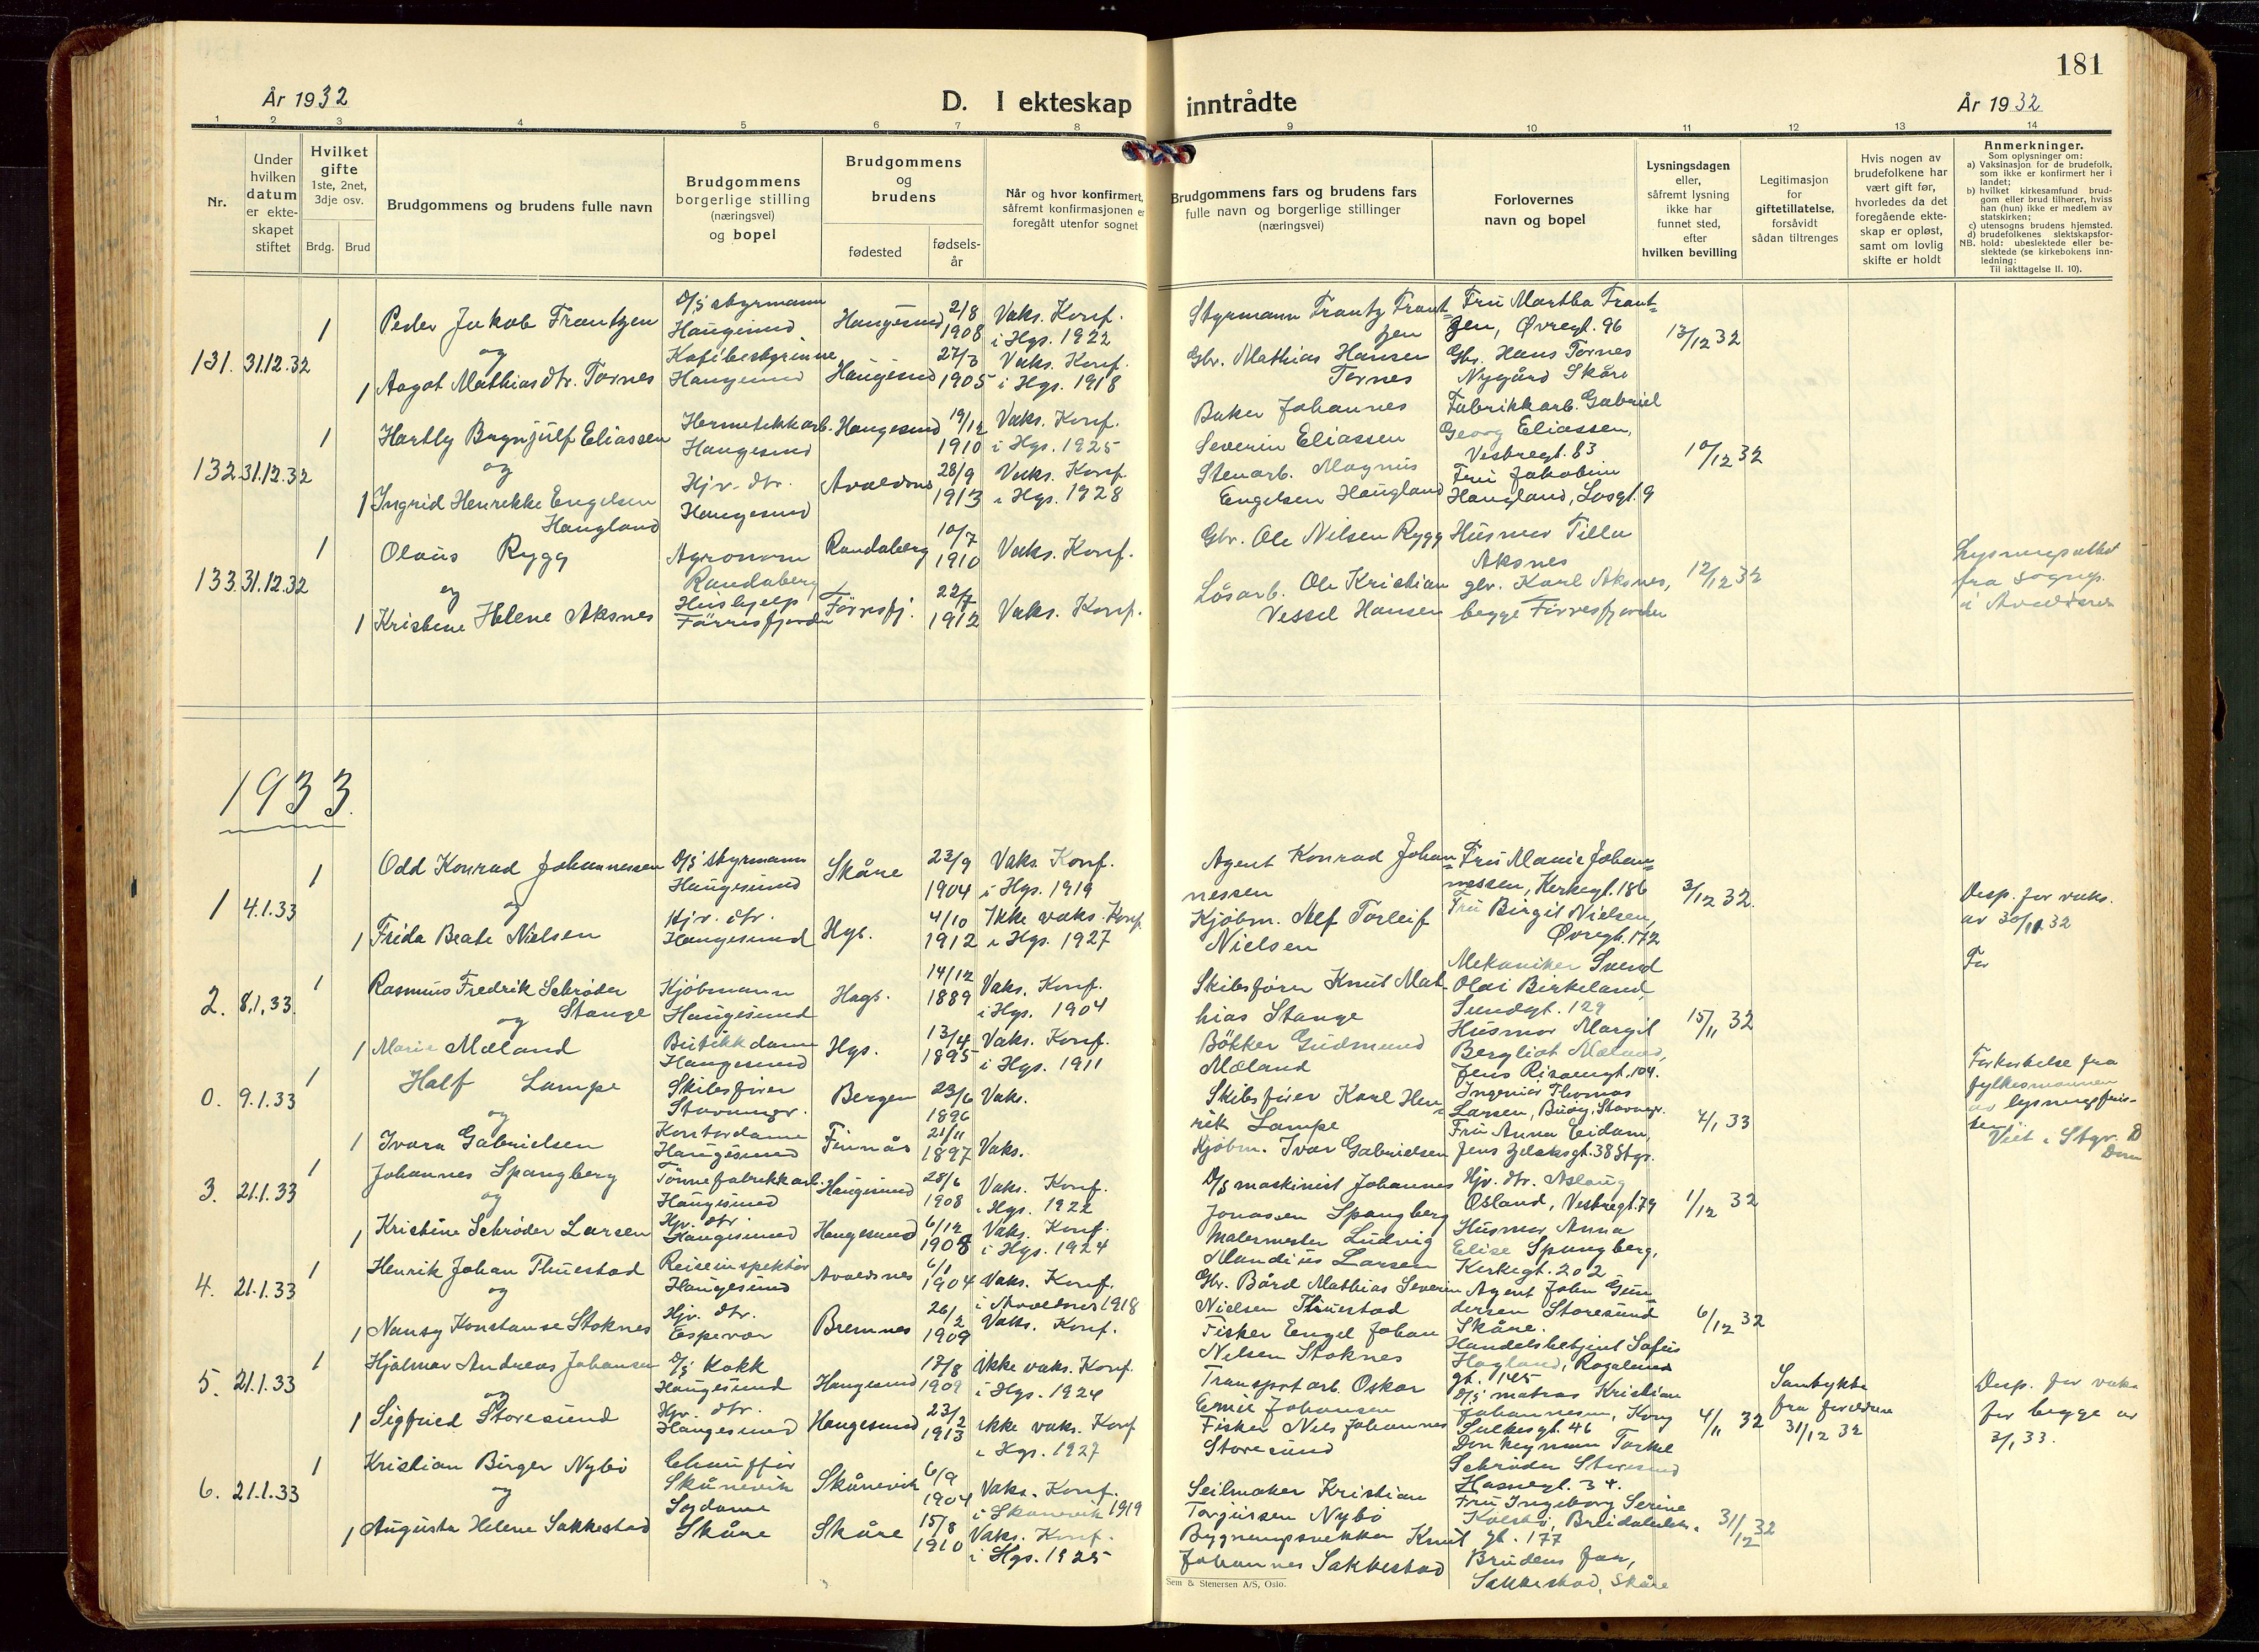 181
År 1932
D. I ekteskap inntrådte
År 1932
1 2 3 4 5 6 7 8 9 10 11 12 13 14
Nr.
Under hvilken datum er ekteskapet stiftet
Hvilket gifte 1ste, 2net, 3dje osv.
Brdg. Brud
Brudgommens og brudens fulle navn
Brudgommens borgerlige stilling (næringsvei) og bopel
Brudgommens og brudens
fødested
fødsels-år
Når og hvor konfirmert, såfremt konfirmasjonen er foregått utenfor sognet
Brudgommens fars og brudens fars fulle navn og borgerlige stillinger (næringsvei)
Forlovernes navn og bopel
Lysningsdagen eller, såfremt lysning ikke har funnet sted, efter hvilken bevilling
Legitimasjon for giftetillatelse, forsåvidt sådan tiltrenges
Hvis nogen av brudefolkene har vært gift før, hvorledes da det foregående ekteskap er opløst, samt om lovlig skifte er holdt
Anmerkninger.
Som oplysninger om:
a) Vaksinasjon for de brudefolk, som ikke er konfirmert her i landet;
b) hvilket kirkesamfund brudgom eller brud tilhører, hviss han (hun) ikke er medlem av statskirken;
c) utensogns brudens hjemsted.
d) brudefolkenes slektskapsforhold: ubeslektede eller beslektede (se kirkebokens innledning:
NB. Til iakttagelse II. 10).
131. 31.12.32
1 Peder Jakob Frantzen D/S styrmann Haugesund Haugesund 2/8 1908 Vaks. Konf. i Hgs. 1922
og
1 Aagot Mathiasdtr. Tornes Kafébestyrinne Haugesund Haugesund 27/3 1905 Vaks. Konf. i Hgs. 1918
Styrmann Frantz Frantzen
Gbr. Mathias Hansen Tornes
Fru Martha Frantzen, Øvregt. 96
Gbr. Hans Tornes Nygård Skåre
13/12 32
132 31.12.32
1 Hartly Brynjulf Eliassen Hermetikkarb. Haugesund Haugesund 19/12 1910 Vaks. Konf. i Hgs. 1925
og
1 Ingrid Henrikke Engelsen Haugland Hjv. dtr. Haugesund Avaldsnes 28/9 1913 Vaks. Konf. i Hgs. 1928
Baker Johannes Severin Eliassen
Stenarb. Magnus Engelsen Haugland
Fabrikkarb. Gabriel Georg Eliassen, Vestregt. 83
Fru Jakobine Haugland, Losgt. 9
10/12 32
133 31.12.32
1 Olaus Rygg Agronom Randaberg Randaberg 10/7 1910 Vaks. Konf.
og
1 Kristine Helene Aksnes Hushjelp Førresfjorden Førresfj. 22/7 1912 Vaks. Konf.
Gbr. Ole Nilsen Rygg
Løsarb. Ole Kristian Vessel Hansen
Husmor Tilla Aksnes
gbr. Karl Aksnes, begge Førresfjorden
12/12 32
Lysningsattest fra sogнep. i Avaldsnes
1933.
1 4.1.33
1 Odd Konrad Johannessen D/S styrmann Haugesund Skåre 23/9 1904 Vaks. Konf. i Hgs. 1919
og
1 Frida Beate Nielsen Hjv. dtr. Haugesund Hgs. 4/10 1912 Ikke vaks. Konf. i Hgs. 1927
Agent Konrad Johannessen
Kjøbm. Alf Torleif Nielsen
Fru Marie Johannessen, Kirkegt. 186
Fru Birgit Nielsen, Øvregt. 172
3/12 32.
Disp. for vaks. av 30/11 32
For
2. 8.1.33.
1 Rasmus Fredrik Schrøder Stange Kjøbmann Haugesund Hags. 14/12 1889 Vaks. Konf. i Hgs. 1904
og
1 Marie Mæland Butikkdame Haugesund Hgs. 13/4 1895 Vaks. Konf. i Hgs. 1911
Skibsfører Knut Mathias Stange
Bøkker Gudmund Mæland
Mekaniker Svend Olai Birkeland, Sundgt. 129
Husmor Margit Bergliot Mæland, Jens Risøengt. 104.
15/11 32
0. 9.1.33
1 Half Lampe Skibsfører Stavanger. Bergen 23/6 1896 Vaks.
og
1 Ivara Gabrielsen Kontordame Haugesund Finnås 21/11 1897 Vaks.
Skibsfører Karl Henrik Lampe
Kjøbm. Ivar Gabrielsen
Ingeniør Thomas Larsen, Buøy, Stavngr.
Fru Anna Eidam, Jens Zetlitzgt. 38 Stgr.
4/1 33
Forkortelse fra fylkesmannen av lysningsfristen
Viet i Stgr. D Dom
3. 21.1.33
1 Johannes Spangberg Tønnefabrikkarb. Haugesund Haugesund 28/6 1908 Vaks. Konf. i Hgs. 1922
og
1 Kristine Schrøder Larsen Hjv. dtr. Haugesund Haugesund 6/12 1908 Vaks. Konf. i Hgs. 1924
D/S maskinist Johannes Jonassen Spangberg
Malermester Ludvig Mandius Larsen
Hjv. dtr. Aslaug Osland, Vestregt. 79
Husmor Anna Elise Spangberg, Kirkegt. 202
1/12 32
4. 21.1.33
1 Henrik Johan Thuestad Reiseinspektør Haugesund Avaldsnes 6/1 1904 Vaks. Konf. i Avaldsnes 1918
og
1 Nansy Konstanse Stoknes Hjv. dtr. Espevær Bremnes 26/2 1909 Vaks. Konf.
Gbr. Bård Mathias Severin Nielsen Thuestad
Fisker Engel Johan Nilsen Stoknes
Agent John Gundersen Storesund Skåre.
Handelsbetjent Sofus Hagland, Rogalandgt. 145
6/12 32
5. 21.1.33
1 Hjalmar Andreas Johansen D/S Kokk Haugesund Haugesund 17/8 1909 ikke vaks. Konf. i Hgs. 1924
og
1 Sigfried Storesund Hjv. dtr. Haugesund Haugesund 23/2 1913 ikke vaks. Konf i Hgs. 1927
Transportarb. Oskar Emil Johansen
Fisker Nils Johannes Storesund
D/S matros Kristian Johannesen, Kong Sulkesgt. 46
Donkeyman Torkel Schrøder Storesund Hasnegt. 34.
4/11 32
Samtykke fra foreldrene 31/12 32
Disp. for vaks for begge av 3/1 33.
6. 21.1.33
1 Kristian Birger Nybø Chauffør Skånevik Skånevik 6/9 1904 Vaks. Konf. i Skånevik 1919
og
1 Augusta Helene Sakkestad Sydame Skåre Skåre 15/8 1910 Vaks. Konf. i Hgs. 1925
Seilmaker Kristian Torgiersen Nybø
Bygningssnekker Knut Johannes Sakkestad
Fru Ingeborg Serine Kolstø, Breidablikgt. 177
Brudens far, Sakkestad, Skåre
31/12 32
Sem & Stenersen A/S, Oslo.